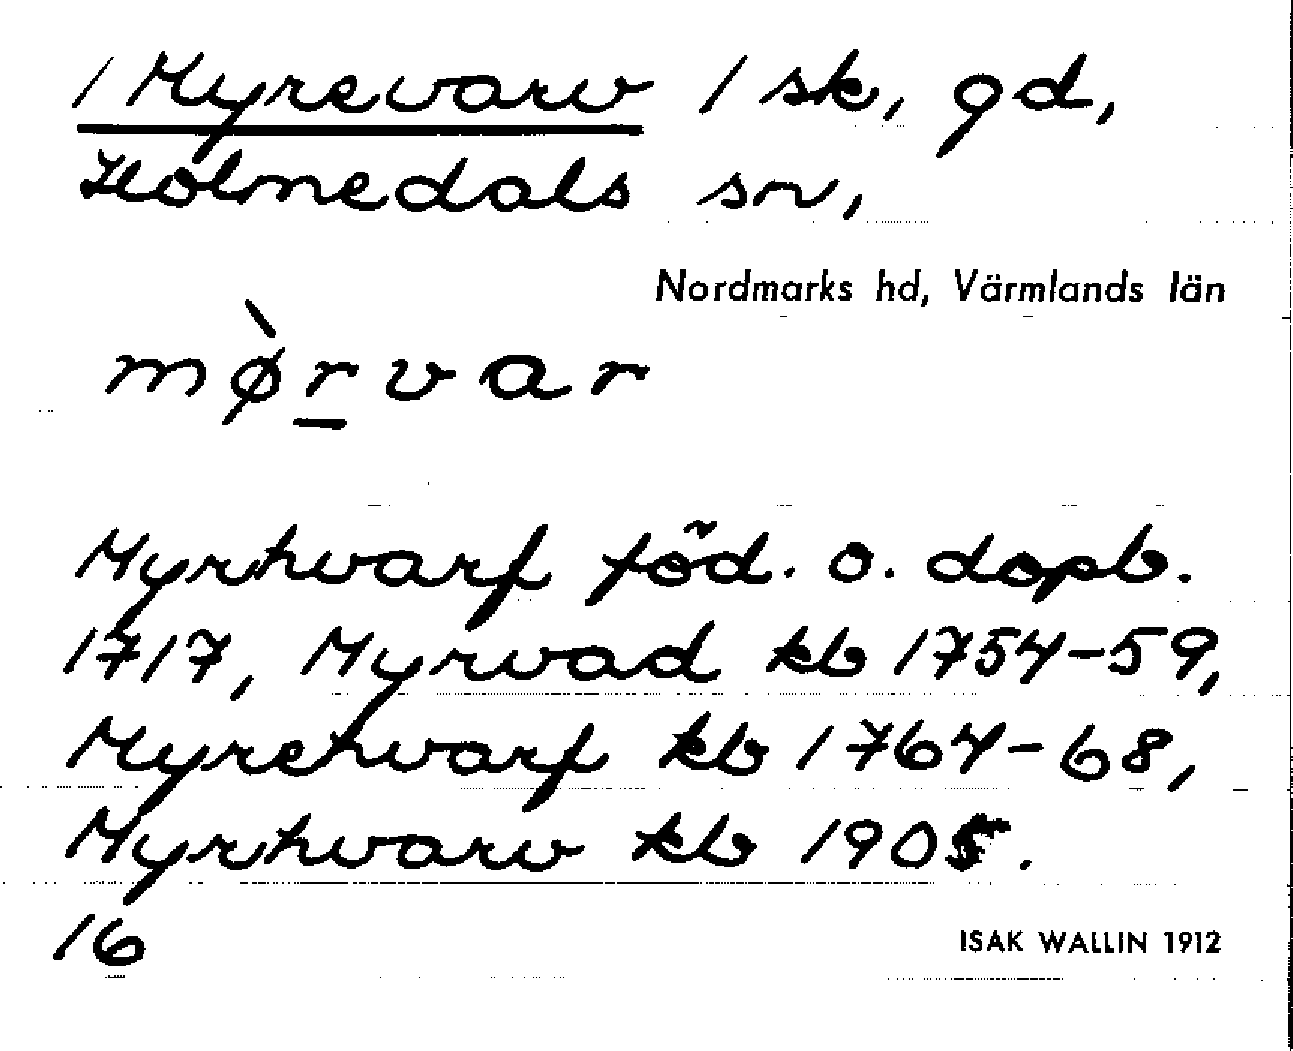 1 Myrevarv 1 sk, gd,
Holmedals sn,
Nordmarks hd, Värmlands län
mø̀r̲var
Myrhvarf föd. o. dopb.
1717, Myrvad kb 1754-59,
Myrehvarf kb 1764-68,
Myrhvarv kb 1905.
16
ISAK WALLIN 1912